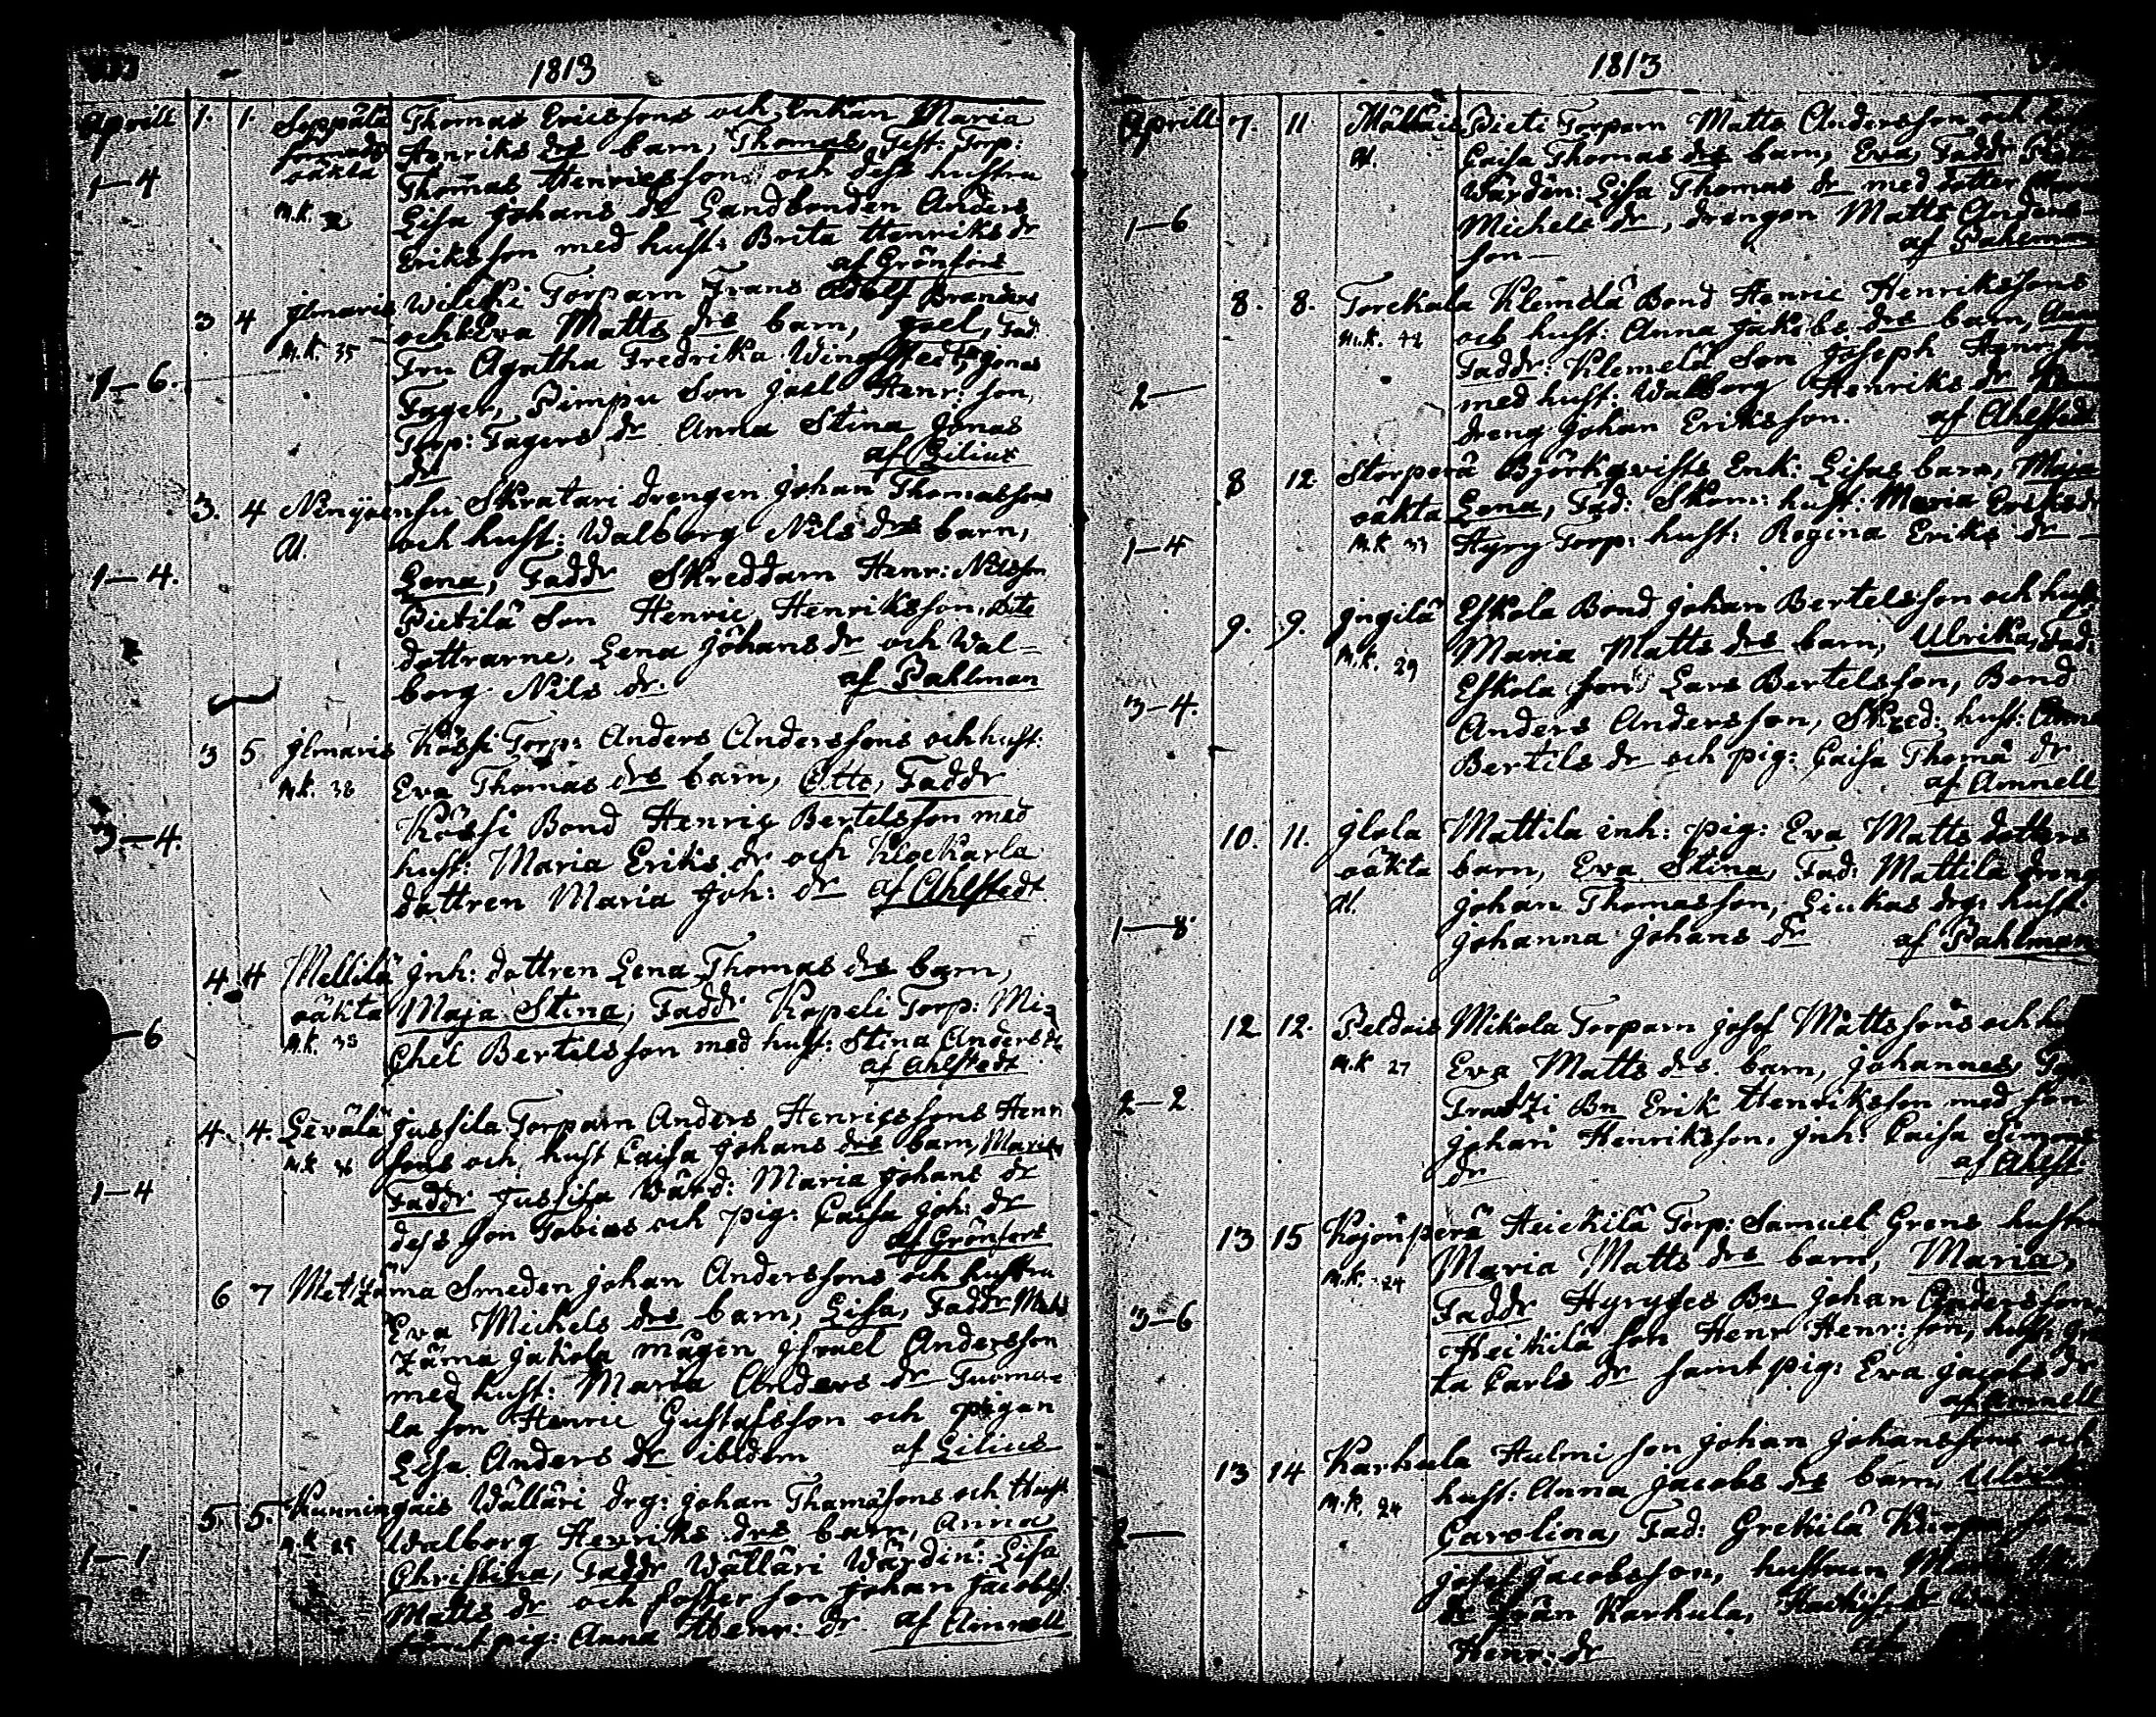 1813
Aprill 1. 1. Seppälä Thomas Ericssons och Enkan Maria
Henriks drs barn, Thomas, Test: Torp:
oäkta Thomas Henricsson och dess hustru
1—4
M.K. Lisa Johans dr Landbonden Anders
Eriksson med hust: Brita Henriks dr
af Grönfors
3 4 Jlmaris Wileki Torparn Frans Adolf Branders
och Eva Matts drs barn, Joel, Fad:
M.K. 35 Fru Agatha Fredrika Wingstedt, Jonas
1—6. Fager, Pimpu Son Joel Henr: son,
Torp: Fagers dr Anna Stina Jonas
dr af Lilius
3. 4 Skratari drengen Johan Thomassons
Al. och hust: Walborg Nils drs barn,
1—4. Lena, Faddr Skreddarn Henr: Nilsson
Pietilä Son Henric Henriksson, dite
dottrarne, Lena Johans dr och Wal-
borg Nils dr. af Pahlman
3 5 Jlmaris Kässi Torp: Anders Anderssons och hust:
M.K. 38 Eva Thomas drs barn, Otto, Faddr
3—4. Kässi Bond Henric Bertelsson med
hust: Maria Eriks dr och Klockarla
dottren Maria Joh: dr af Ahlstedt
4. 4 Mellilä Jnh: dottren Lena Thomas drs barn,
oäkta Maja Stina, Faddr Kapeli Torp: Mi-
—6 M.K. chel Bertelsson med hust: Stina Anders dr
af Ahlstedt
4. 4. Levälä Jussila Torparn Anders Henricssons Henr
M.K. sons och hust Caisa Johans drs barn, Maria,
1—4 Faddr Jussila Värd: Maria Johans dr
dess son Tobias och pig: Caisa Joh: dr
af Grönfors
6 7 Metzäma Smeden Johan Anderssons och hustru
Eva Michels drs barn, Lisa, Faddr Met
zäma Jakola mågen Jsrael Andersson
med hust: Maria Anders dr Tuoma-
la son Henric Gustafsson och pigan
Lisa Anders dr ibidem af Lilius
5. 5. Kunningais Wälläri drg: Johan Thomäsons och Hust
M.K. Walborg Henriks drs barn, Anna
1—1 Christina, Faddr Wälläri Wärdin: Lisa
Matts dr och foster son Johan Jacobss:
samt pig: Anna Henr: dr af Aminell
1813
Aprill 7. 11. Pieti Torparn Matts Andersson och
Al. Caisa Thomas drs barn, Eva, Faddr
Wärdin: Lisa Thomas dr med dotter
1—6 Michels dr, drengen Matts Anders
son— af Pahlman
8. 8. Torckala Klemelä Bond Henric Henrikssons
M.K. 42 och hust: Anna Jakobs drs barn, Anna
Faddr: Klemelä Son Joseph
2— med hust: Walborg Henriks dr
dreng Johan Eriksson. af Ahlstedt
8 12. Storperä Björkqvists Enk: Lisas barn, Maja
oäkta Lena, Fad: Skom: hust: Maria Eriksdr
1—4 M.K 33 Hyry Torp: hust: Regina Eriks dr —
9. 9. Jngilä Eskola Bond Johan Bertelsson och hust
M.K. 29 Maria Matts drs barn, Ulrika, Fad:
Eskola son Lars Bertelsson, Bond
3—4. Anders Andersson, Skred: hust: Anna
Bertils dr och pig: Caisa Thomä dr
af Aminell
10. 11. Jlola Mattila inh: pig: Eva Matts dotters
oäkta barn, Eva Stina, Fad: Mattila dreng
Al. Johan Thomasson, Liukas drg: hust:
1—8 Johanna Johans dr af Pahlman
12 12. Peldois Mikola Torparn Josef Mattssons och
M.K 27 Eva Matts drs barn, Johannes,
2—2. Bn Erik Henriksson med son
Johan Henriksson, Jnh: Caisa Simons
dr af Ahlst:
13 15 Kojonperä Heickilä Torp: Samuel Grens hustru
M.K. 24 Maria Matts drs barn, Maria,
3—6 Faddr Hyryses Bn Johan Andersson,
Heikilä son Henr Henr: son, hust: Gre
ta Carls dr samt pig: Eva Jacobs dr
af Aminell
13 14 Karhula Hulmi son Johan Johanssons och
M.K. 24 hust: Anna Jacobs drs barn, Ulrika
2— Carolina, Fad: Grekilä
Josef Jacobsson, hustrun
dr från Karhula,
Henr: dr